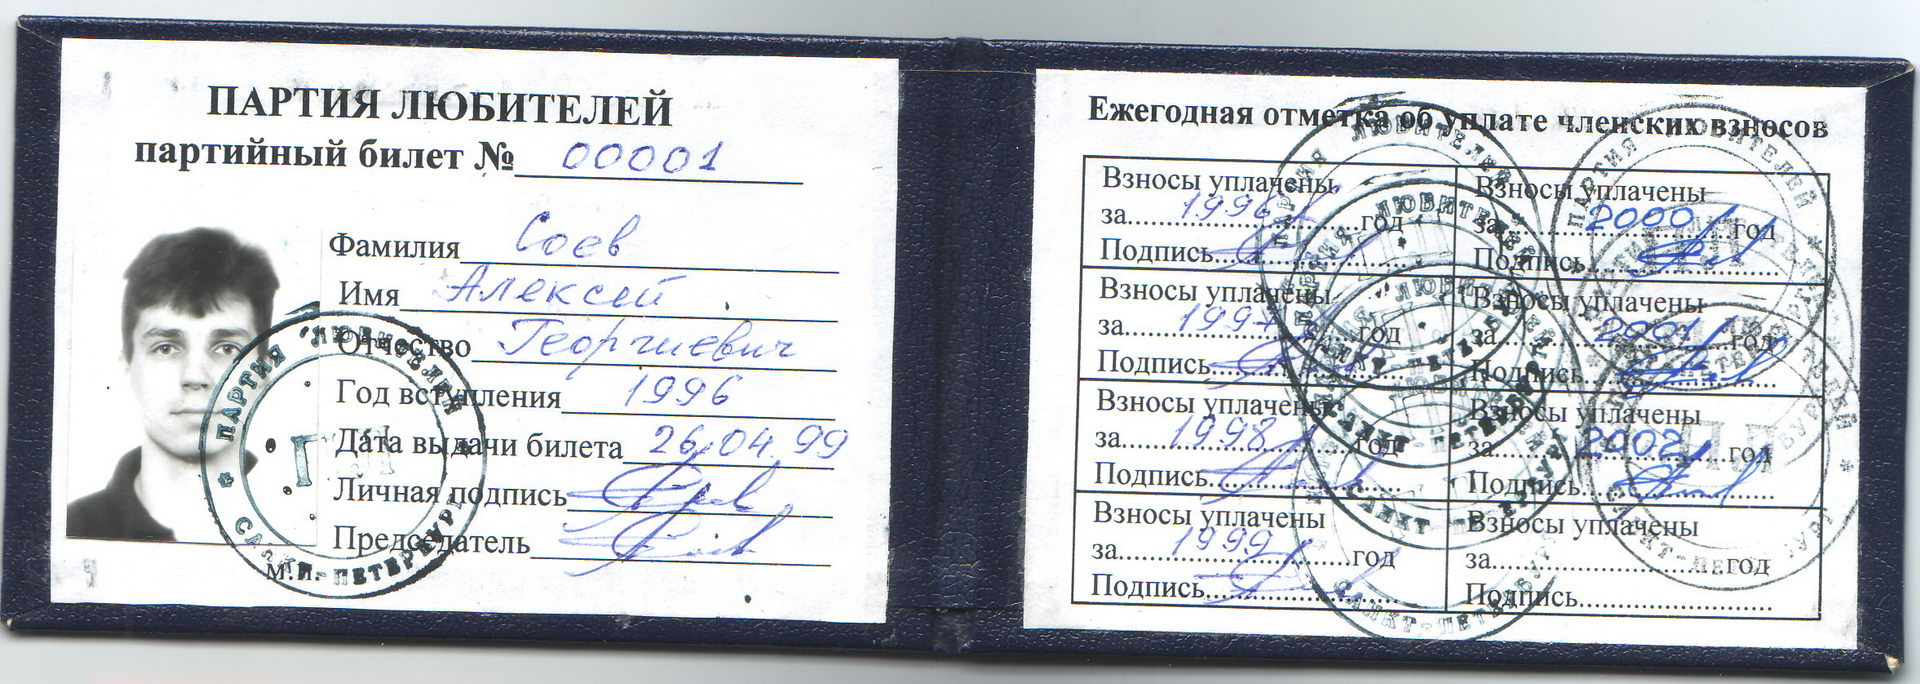 ПАРТИЯ ЛЮБИТЕЛЕЙ
партийный билет № 00001
Фамилия Соев
Имя Алексей
Отчество Георгиевич
Год вступления 1996
Дата выдачи билета 26.04.99
Личная подпись
Председатель
М.П.
ПАРТИЯ ЛЮБИТЕЛЕЙ
САНКТ-ПЕТЕРБУРГ
Ежегодная отметка об уплате членских взносов
Взносы уплачены
за 1996 год
Подпись
Взносы уплачены
за 1997 год
Подпись
Взносы уплачены
за 1998 год
Подпись
Взносы уплачены
за 1999 год
Подпись
Взносы уплачены
за 2000 год
Подпись
Взносы уплачены
за 2001 год
Подпись
Взносы уплачены
за 2002 год
Подпись
Взносы уплачены
за год
Подпись
ПАРТИЯ ЛЮБИТЕЛЕЙ
САНКТ-ПЕТЕРБУРГ